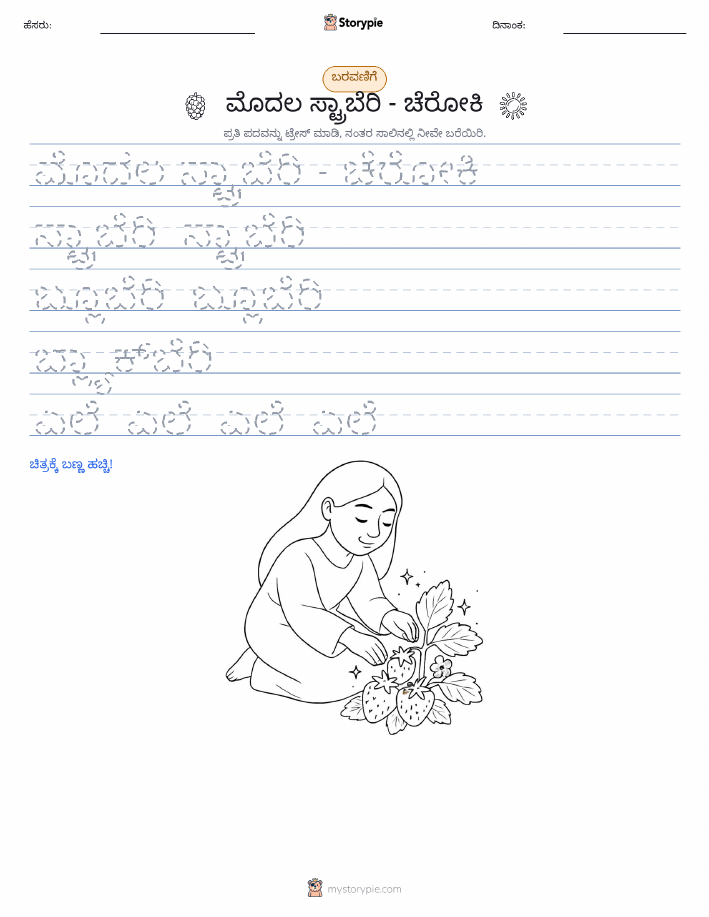 ಹೆಸರು: Storypie ದಿನಾಂಕ:
ಬರವಣಿಗೆ
ಮೊದಲ ಸ್ಟ್ರಾಬೆರಿ - ಚೆರೋಕಿ
ಪ್ರತಿ ಪದವನ್ನು ಟ್ರೇಸ್ ಮಾಡಿ, ನಂತರ ಸಾಲಿನಲ್ಲಿ ನೀವೇ ಬರೆಯಿರಿ.
ಮೊದಲ ಸ್ಟ್ರಾಬೆರಿ - ಚೆರೋಕಿ
ಸ್ಟ್ರಾಬೆರಿ ಸ್ಟ್ರಾಬೆರಿ
ಬ್ಲೂಬೆರಿ ಬ್ಲೂಬೆರಿ
ಬ್ಲ್ಯಾಕ್‌ಬೆರಿ
ಎಲೆ ಎಲೆ ಎಲೆ ಎಲೆ
ಚಿತ್ರಕ್ಕೆ ಬಣ್ಣ ಹಚ್ಚಿ!
mystorypie.com